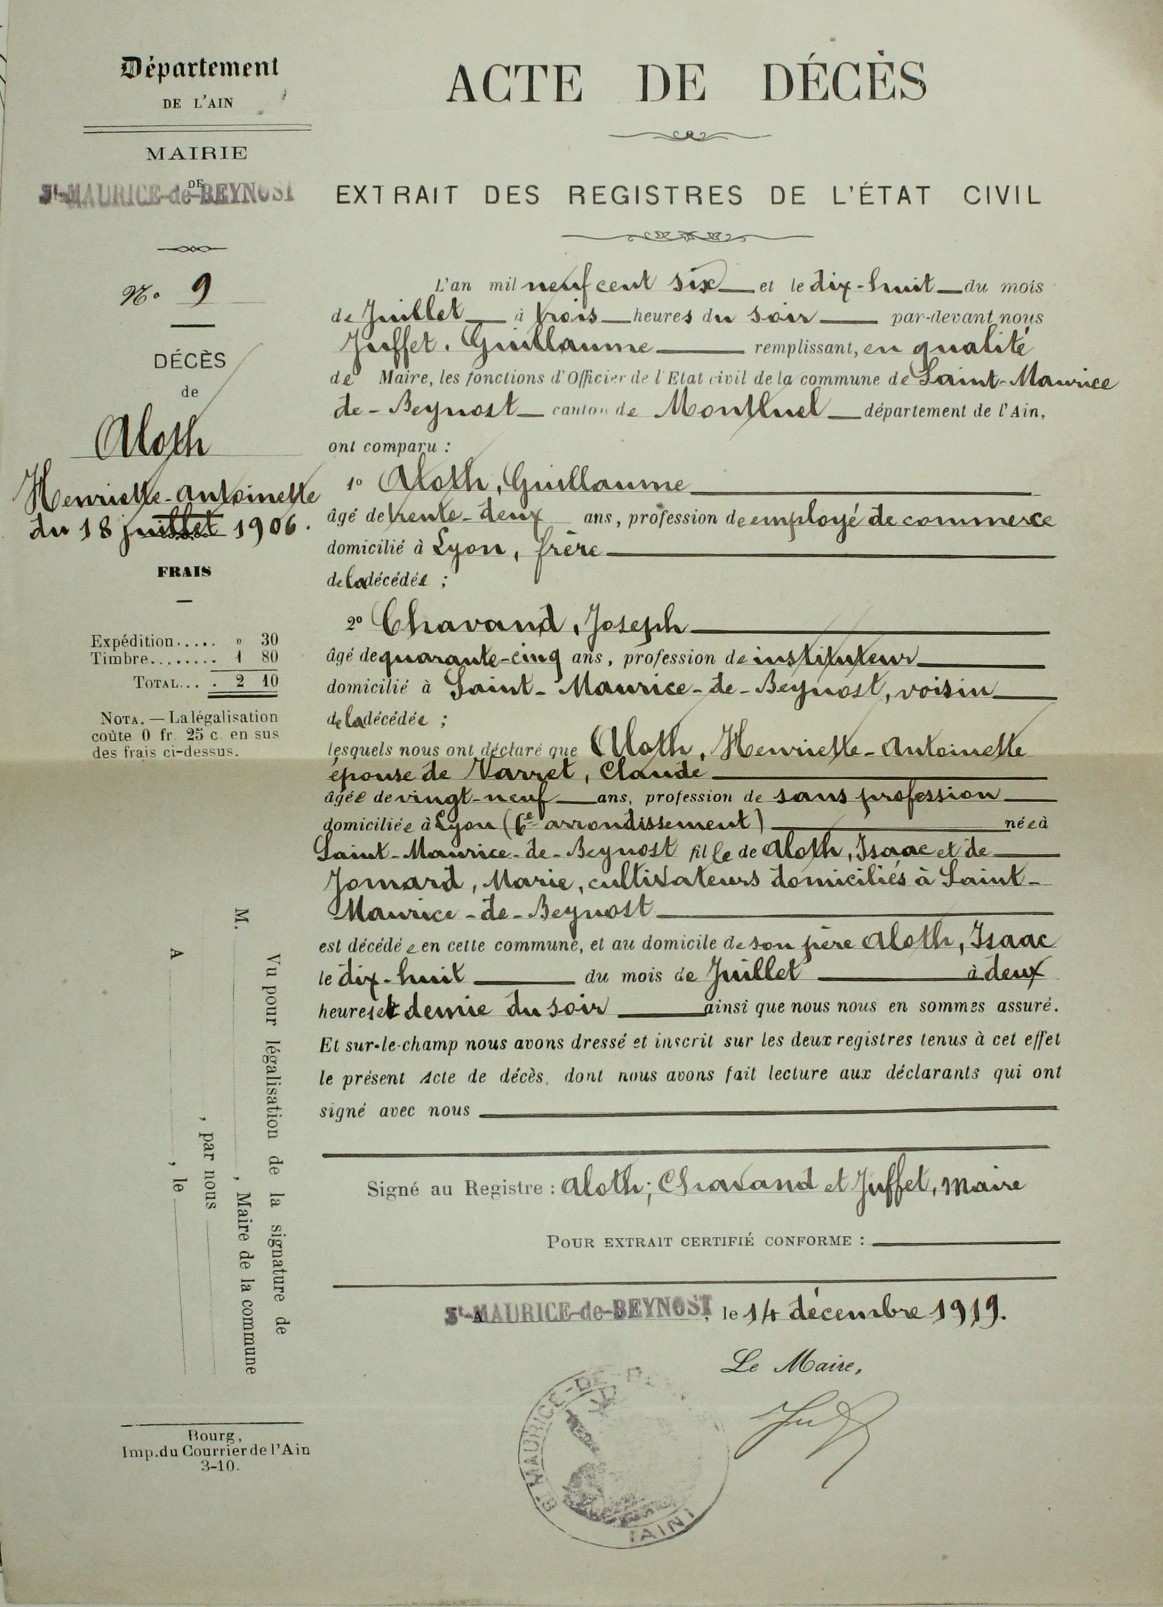 Département
DE L'AIN
MAIRIE
DE
St-MAURICE-de-BEYNOST
N° 9
DÉCÈS
de
Aloth
Henriette-Antoinette
du 18 juillet 1906.
FRAIS
Expédition..... " 30
Timbre........ 1 80
TOTAL.... 2 10
NOTA. — La légalisation
coûte 0 fr. 25 c. en sus
des frais ci-dessus.
Vu pour légalisation de la signature de
M. , Maire de la commune
, par nous
A , le
Bourg,
Imp. du Courrier de l'Ain
3-10.
ACTE DE DÉCÈS
EXTRAIT DES REGISTRES DE L'ÉTAT CIVIL
L'an mil neuf cent six et le dix-huit du mois
de Juillet à trois heures du soir par-devant nous
Juffet, Guillaume remplissant, en qualité
de Maire, les fonctions d'Officier de l'Etat civil de la commune de Saint-Maurice
de-Beynost canton de Montluel département de l'Ain,
ont comparu :
1° Aloth, Guillaume
âgé de trente-deux ans, profession de employé de commerce
domicilié à Lyon, frère
de la décédée ;
2° Chavand, Joseph
âgé de quarante-cinq ans, profession de instituteur
domicilié à Saint-Maurice-de-Beynost, voisin
de la décédée ;
lesquels nous ont déclaré que Aloth, Henriette-Antoinette
épouse de Varret, Claude
âgée de vingt-neuf ans, profession de sans profession
domiciliée à Lyon (6e arrondissement) née à
Saint-Maurice-de-Beynost fille de Aloth, Isaac et de
Jomard, Marie, cultivateurs domiciliés à Saint-
Maurice-de-Beynost
est décédée en cette commune, et au domicile de son père Aloth, Isaac
le dix-huit du mois de Juillet à deux
heures et demie du soir ainsi que nous nous en sommes assuré.
Et sur-le-champ nous avons dressé et inscrit sur les deux registres tenus à cet effet
le présent Acte de décès, dont nous avons fait lecture aux déclarants qui ont
signé avec nous
Signé au Registre : Aloth; Chavand et Juffet, Maire
POUR EXTRAIT CERTIFIÉ CONFORME :
A St-MAURICE-de-BEYNOST, le 14 décembre 1919.
Le Maire,
St MAURICE-DE-
(AIN)